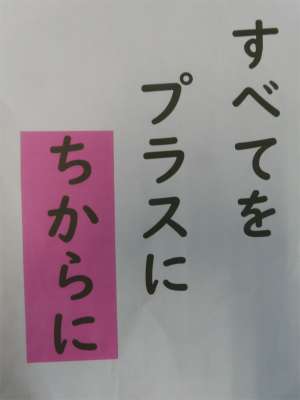 すべてを
プラスに
ちからに